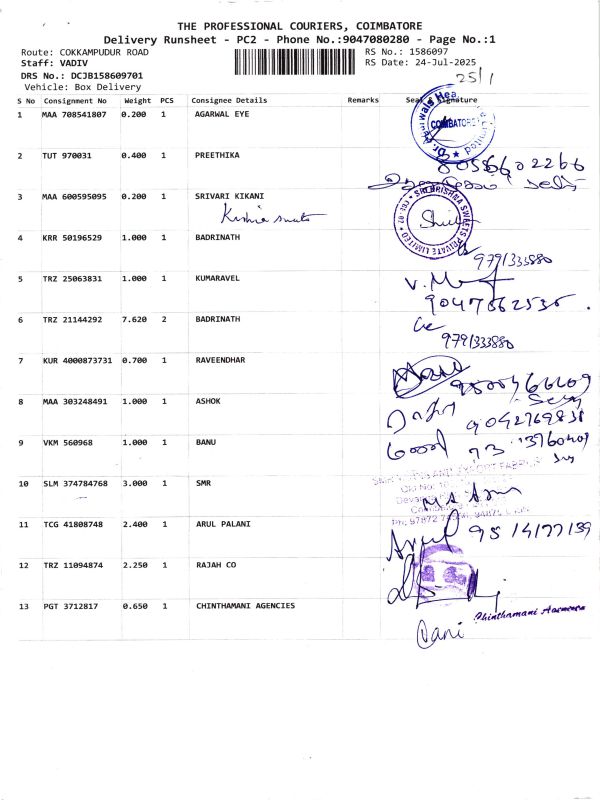 THE PROFESSIONAL COURIERS, COIMBATORE
Delivery Runsheet - PC2 - Phone No.:9047080280 - Page No.:1
Route: COKKAMPUDUR ROAD RS No.: 1586097
Staff: VADIV RS Date: 24-Jul-2025
DRS No.: DCJB158609701
Vehicle: Box Delivery
25/1
S No Consignment No Weight PCS Consignee Details Remarks Seal & Signature
1 MAA 708541807 0.200 1 AGARWAL EYE
COIMBATORE
2 TUT 970031 0.400 1 PREETHIKA
8056602266
3 MAA 600595095 0.250 1 SRIVARI KIKANI
SRI KRISHNA SWEETS PRIVATE LIMITED
4 KRR 50196529 1.000 1 BADRINATH
9791333880
5 TRZ 25063831 1.000 1 KUMARAVEL
9047862536
6 TRZ 21144292 7.620 2 BADRINATH
9791333880
7 KUR 4000873731 0.700 1 RAVEENDHAR
8 MAA 303248491 1.000 1 ASHOK
9042769838
9 VKM 560968 1.000 1 BANU
10 SLM 374784768 3.000 1 SMR
11 TCG 41808748 2.400 1 ARUL PALANI
9514177139
12 TRZ 11094874 2.250 1 RAJAH CO
13 PGT 3712817 0.650 1 CHINTHAMANI AGENCIES
Chinthamani Agencies
Vani